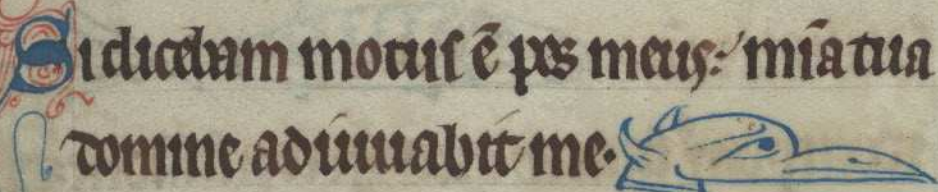 Si dicebam motus ē pes meus: mīa tua
domine adiuuabit me.